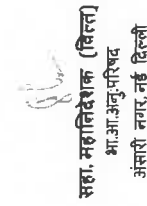 सहा. महानिदेशक (वित्त)
भा.आ.अनु.परिषद
अंसारी नगर, नई दिल्ली